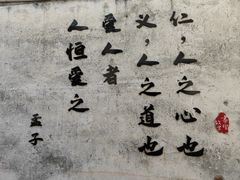 仁，人之心也
义，人之道也
爱人者
人恒爱之
孟子